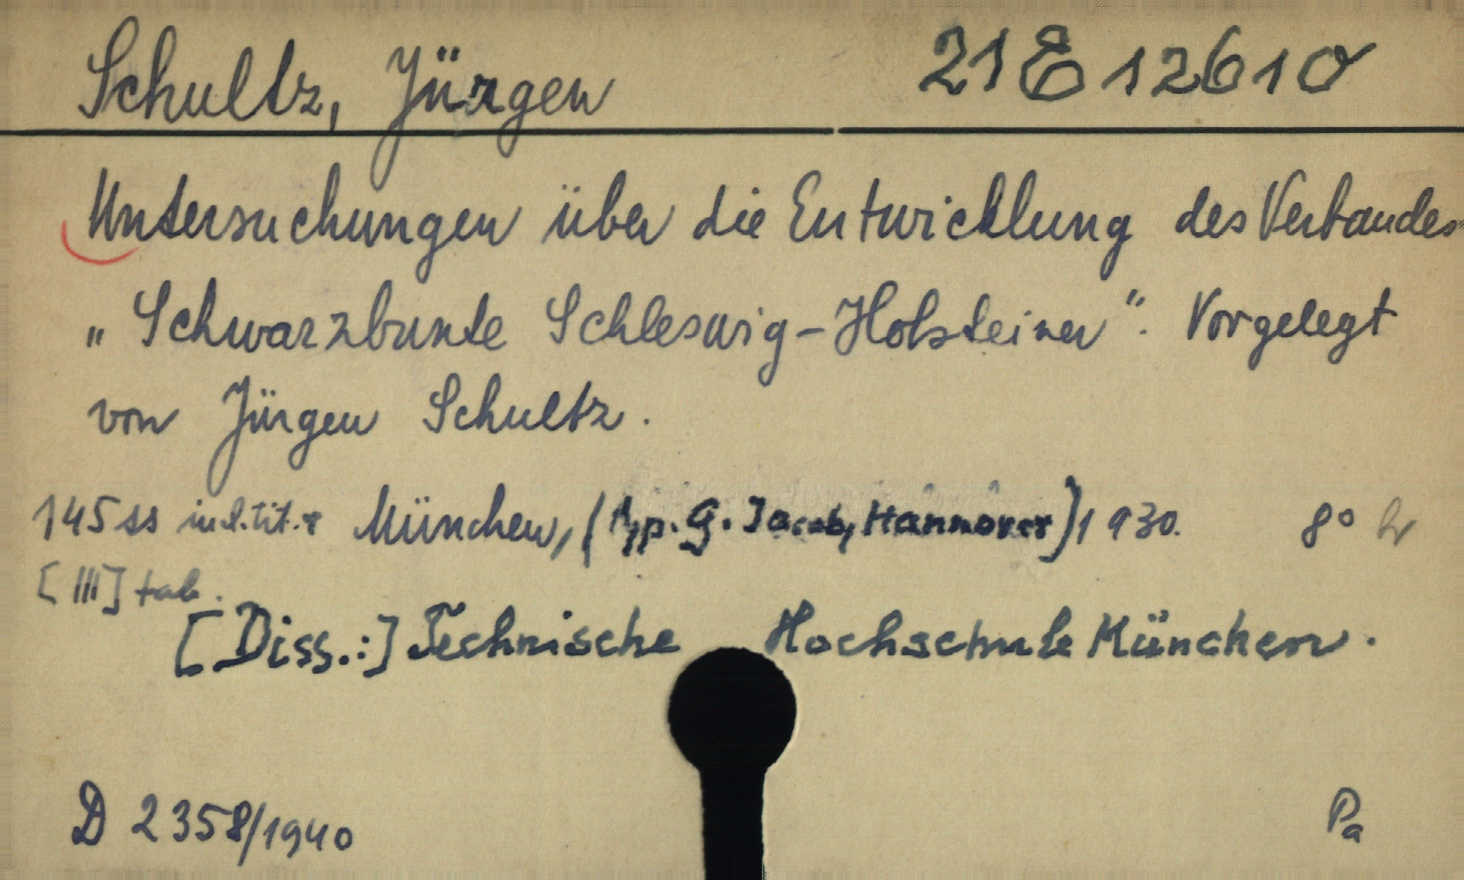 Schultz, Jürgen 21 E 12610
Untersuchungen über die Entwicklung des Verbandes
„Schwarzbunte Schleswig-Holsteiner“. Vorgelegt
von Jürgen Schultz.
145 ss incl. tit. & München, (Typ. G. Jacob, Hannover) 1930. 8°
[III] tab.
[Diss.:] Technische Hochschule München.
D 2358/1940 Pa